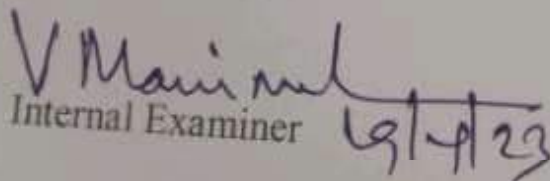 V
Internal Examiner 19/4/23